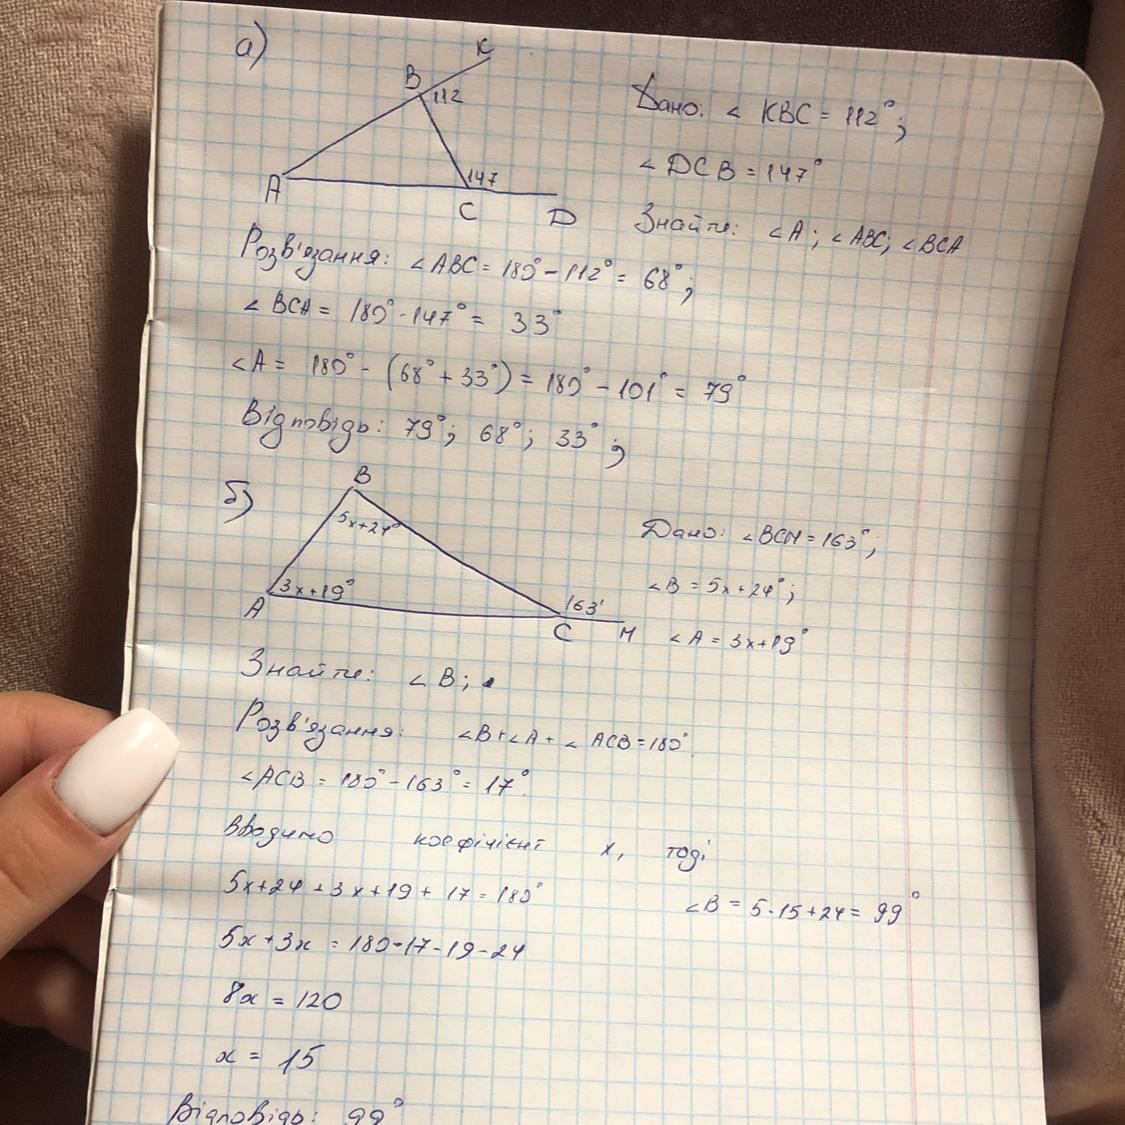 а)
K
B
112
147
A
C
D
Дано: ∠ KBC = 112°;
∠ DCB = 147°
Знайти: ∠A; ∠ABC; ∠BCA
Розв'язання: ∠ABC = 180° - 112° = 68°;
∠ BCA = 180° - 147° = 33°
∠A = 180° - (68° + 33°) = 180° - 101° = 79°
Відповідь: 79°; 68°; 33°;
б)
B
5x+24°
3x+19°
A
163°
C
M
Дано: ∠BCM = 163°;
∠B = 5x + 24°;
∠A = 3x+19°
Знайти: ∠B;
Розв'язання: ∠B + ∠A + ∠ ACB = 180°.
∠ACB = 180° - 163° = 17°.
Вводимо коефічієнт x, тоді
5x+24 + 3x + 19 + 17 = 180°
∠B = 5·15 + 24 = 99°
5x + 3x = 180-17-19-24
8x = 120
x = 15
Відповідь: 99°